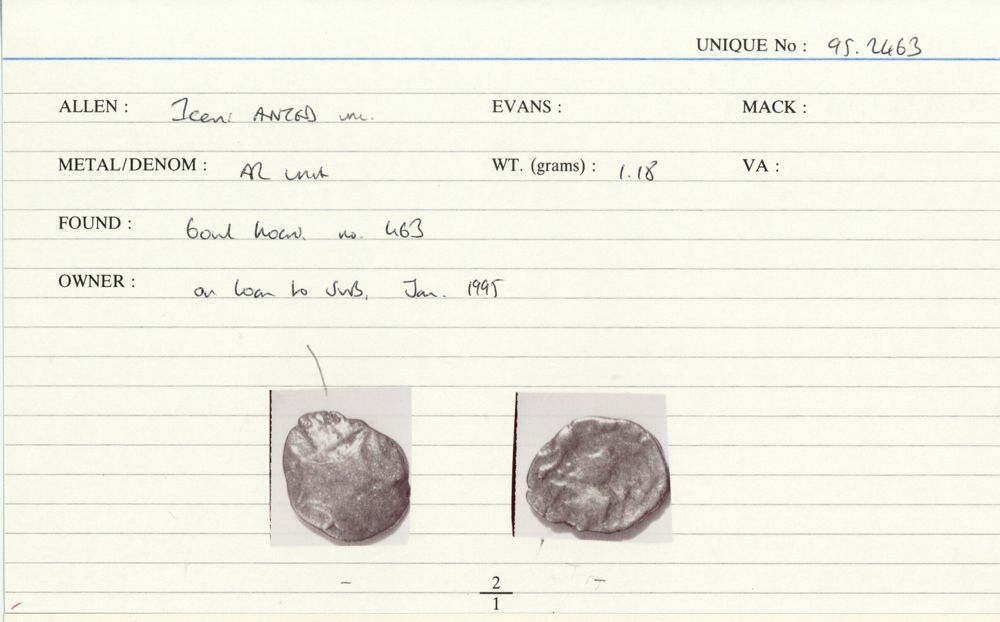 UNIQUE No : 95.2463
ALLEN : Iceni ANTED unc. EVANS : MACK :
METAL/DENOM : AR unit WT. (grams) : 1.18 VA :
FOUND : hoard, no. 463
OWNER : on loan to Jan. 1995
2
1